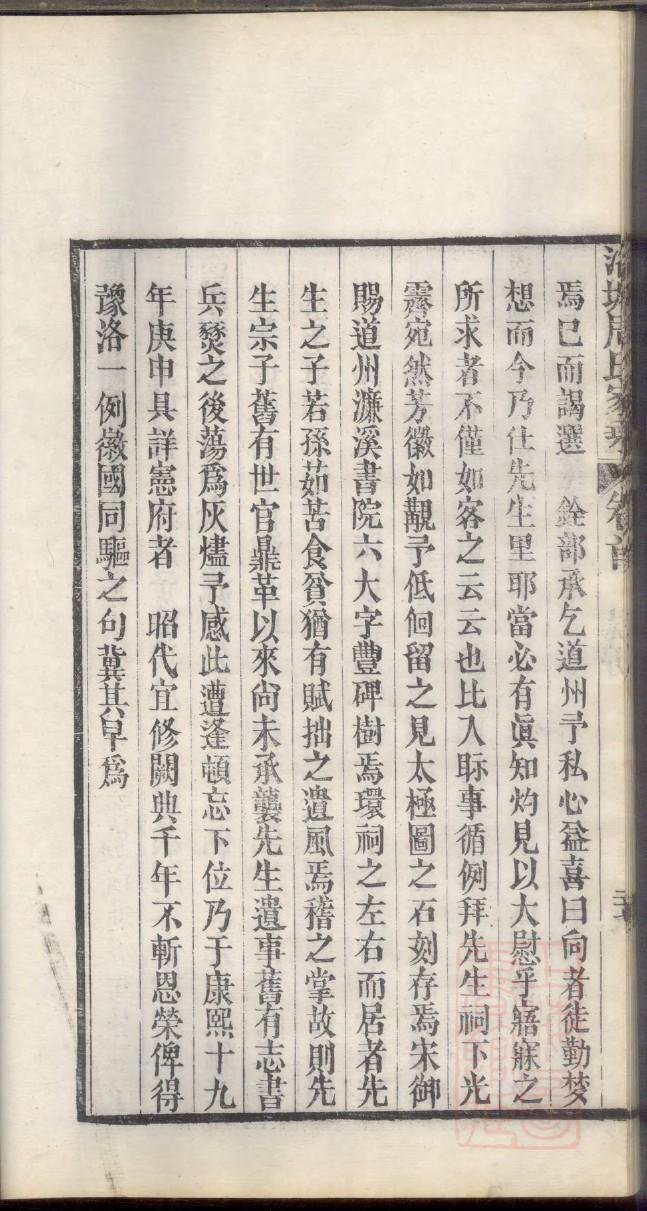 焉巳而謁選　銓部承乞道州予私心益喜曰向者徒勤梦
想而今乃仕先生里耶當必有眞知灼見以大慰乎寤寐之
所求者不僅如客之云云也比入眎事循例拜先生祠下光
霽宛然芳徽如覯予低佪留之見太極圖之石刻存焉宋御
賜道州濂溪書院六大字豐碑樹焉環祠之左右而居者先
生之子若孫茹苦食貧猶有賦拙之遺風焉稽之掌故則先
生宗子舊有世官鼎革以來尙未承襲先生遺事舊有志書
兵燹之後蕩爲灰燼予感此遭逢頓忘下位乃于康熙十九
年庚申具詳憲府者　昭代宜修闕典千年不斬恩榮俾得
豫洛一例徽國同驅之句冀其早爲